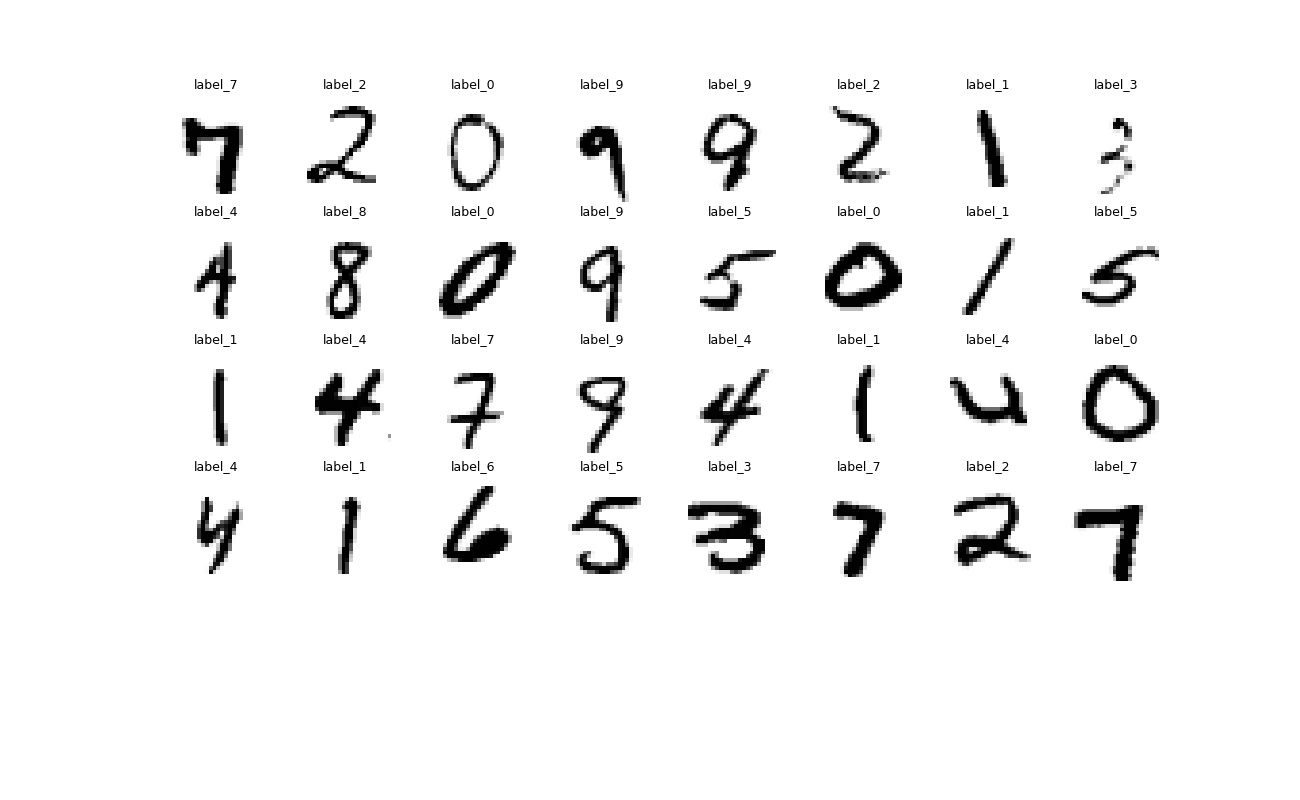 label_7 label_2 label_0 label_9 label_9 label_2 label_1 label_3
7 2 0 9 9 2 1 3
label_4 label_8 label_0 label_9 label_5 label_0 label_1 label_5
4 8 0 9 5 0 1 5
label_1 label_4 label_7 label_9 label_4 label_1 label_4 label_0
1 4 7 9 4 1 4 0
label_4 label_1 label_6 label_5 label_3 label_7 label_2 label_7
4 1 6 5 3 7 2 7